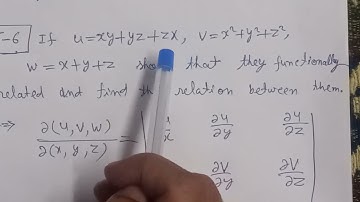 -6 If u=xy+yz+zx, v=x²+y²+z²,
w=x+y+z that they functionally
related and find the relation between them.
⇒ ∂(u,v,w)/∂(x,y,z) = | x ∂u/∂y ∂u/∂z |
∂v/∂y ∂v/∂z